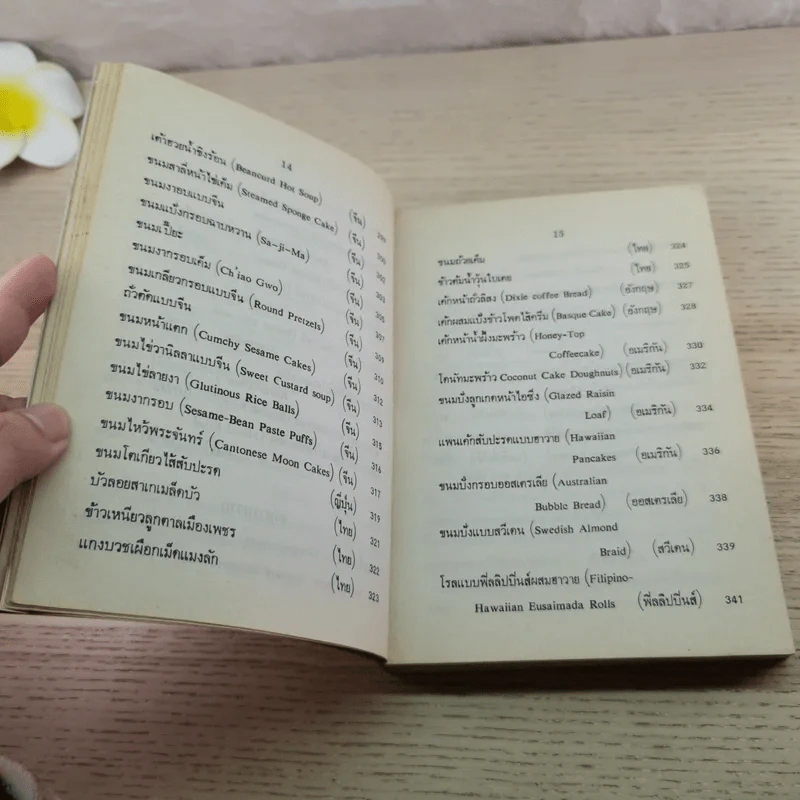 14
เต้าฮวยน้ำขิงร้อน (Beancurd Hot Soup) (จีน) 299
ขนมสาลี่หน้าไข่เค็ม (Steamed Sponge Cake) (จีน) 300
ขนมงาอบแบบจีน (จีน) 302
ขนมแป้งกรอบฉาบหวาน (Sa-ji-Ma) (จีน) 303
ขนมเปี๊ยะ (จีน) 305
ขนมงากรอบเค็ม (Ch'iao Gwo) (จีน) 307
ขนมเกลียวกรอบแบบจีน (Round Pretzels) (จีน) 309
ถั่วตัดแบบจีน (จีน) 310
ขนมหน้าแตก (Cumchy Sesame Cakes) (จีน) 312
ขนมไข่วานิลลาแบบจีน (Sweet Custard soup) (จีน) 313
ขนมไข่ลายงา (Glutinous Rice Balls) (จีน) 315
ขนมงากรอบ (Sesame-Bean Paste Puffs) (จีน) 316
ขนมไหว้พระจันทร์ (Cantonese Moon Cakes) (จีน) 317
ขนมโตเกียวไส้สับปะรด (ญี่ปุ่น) 319
บัวลอยสาเกเมล็ดบัว (ไทย) 321
ข้าวเหนียวลูกตาลเมืองเพชร (ไทย) 322
แกงบวชเผือกเม็ดแมงลัก (ไทย) 323
15
ขนมถ้วยเค็ม (ไทย) 324
ข้าวต้มน้ำวุ้นใบเตย (ไทย) 325
เค้กหน้าถั่วลิสง (Dixie coffee Bread) (อังกฤษ) 327
เค้กผสมแป้งข้าวโพดไส้ครีม (Basque Cake) (อังกฤษ) 328
เค้กหน้าน้ำผึ้งมะพร้าว (Honey-Top
Coffeecake) (อเมริกัน) 330
โดนัทมะพร้าว Coconut Cake Doughnuts) (อเมริกัน) 332
ขนมปังลูกเกดหน้าไอซิ่ง (Glazed Raisin
Loaf) (อเมริกัน) 334
แพนเค้กสับปะรดแบบฮาวาย (Hawaiian
Pancakes) (อเมริกัน) 336
ขนมปังกรอบออสเตรเลีย (Australian
Bubble Bread) (ออสเตรเลีย) 338
ขนมปังแบบสวีเดน (Swedish Almond
Braid) (สวีเดน) 339
โรลแบบฟิลลิปปินส์ผสมฮาวาย (Filipino-
Hawaiian Eusaimada Rolls (ฟิลลิปปินส์) 341